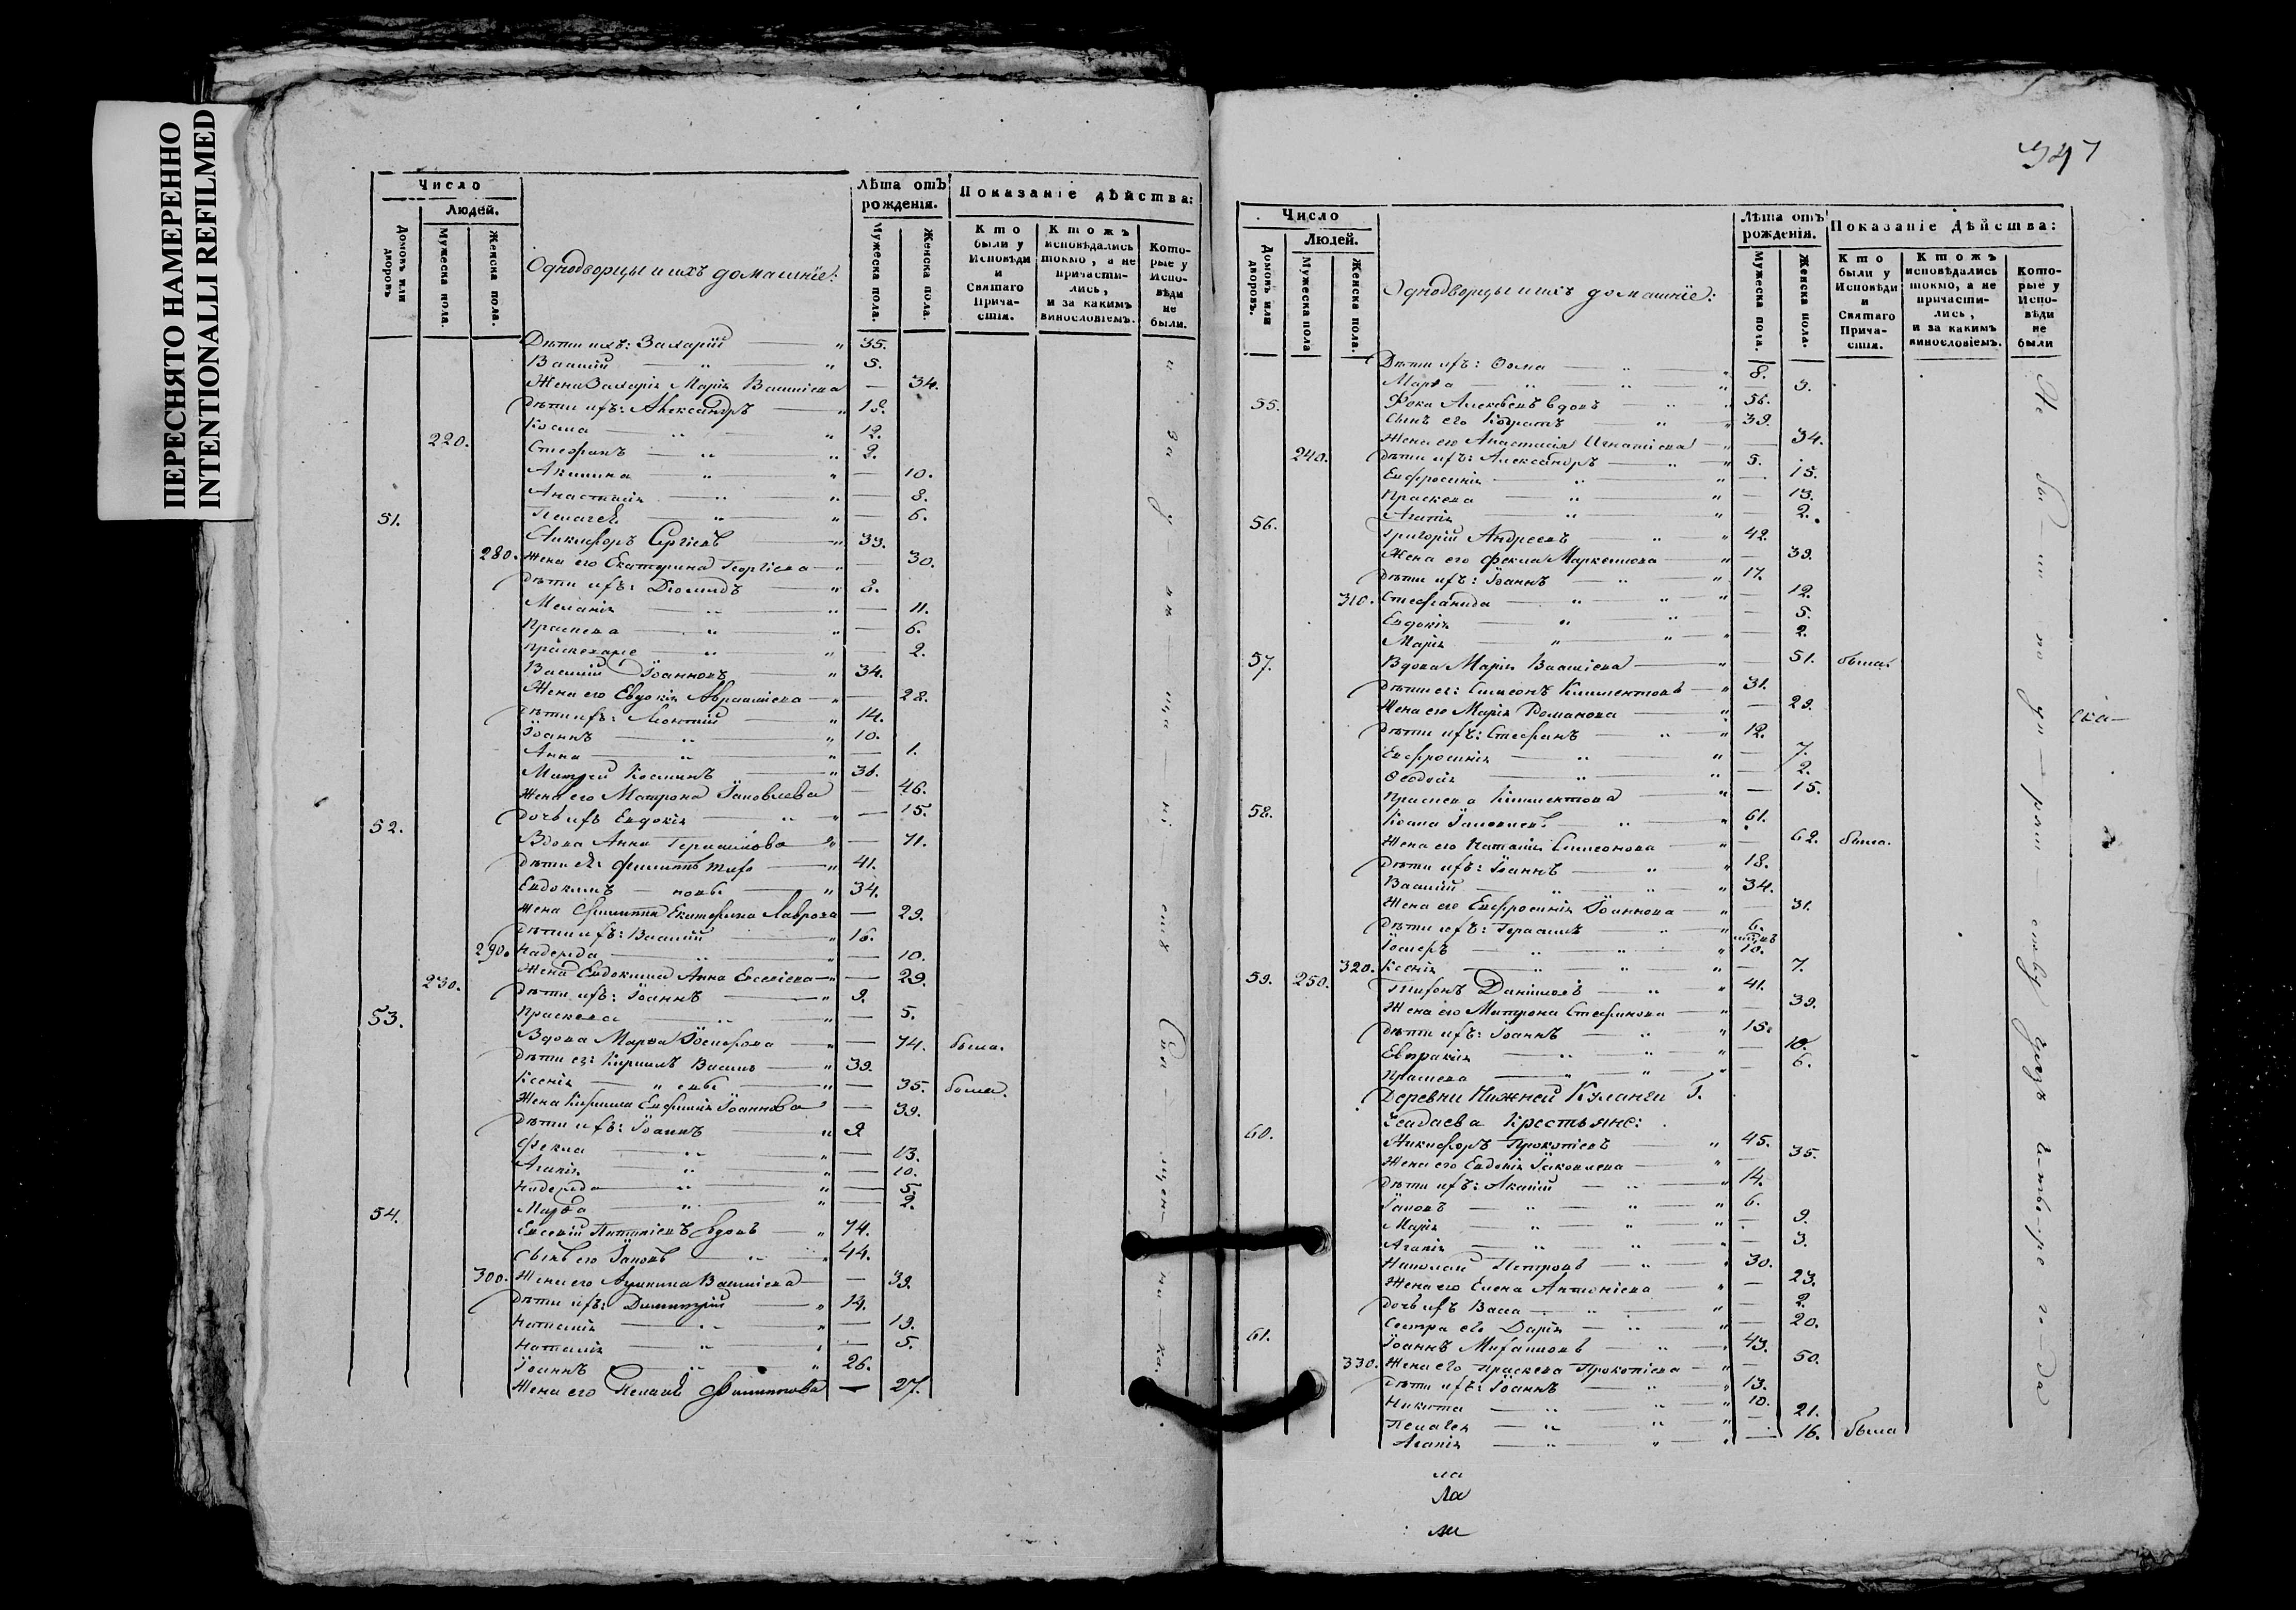 ПЕРЕСНЯТО НАМЕРЕННО
INTENTIONALLI REFILMED
Число
Людей.
Домовъ или дворовъ
Мужеска пола.
Женска пола.
Однодворцы и ихъ домашнїе:
Лѣта отъ рожденія.
Мужеска пола.
Женска пола.
Показаніе дѣйства:
Кто были у Исповѣди и Святаго Прича-стія.
Ктожъ исповѣдались токмо, а не причасти-лись, и за какимъ винословіемъ.
Кото-рые у Испо-вѣди не были.
Дѣти ихъ: Захарїй 35.
Василїй 5.
Жена Захарїя Марїя Василїева — 34.
Дѣти ихъ: Александръ
Козма 12.
220. Стефанъ 9.
Акилина — 10.
Анастасїя — 8.
Пелагея — 6.
51. Никифоръ Сергїевъ 33.
280. Жена его Екатерина Георгїева — 30.
Дѣти ихъ: Дїомидъ 8.
Меланїя — 11.
Праскева — 6.
— 2.
Василїй Їоанновъ 34.
Жена его Евдокїя — 28.
Дѣти ихъ: Леонтїй 14.
Їоаннъ 10.
Анна — 1.
Козминъ 36.
Жена его Матрона Їаковлева — 46.
Дочь ихъ Евдокїя — 15.
52. Вдова Анна Герасимова — 71.
Дѣти ея: Филиппъ 41.
Евдокимъ 34.
Жена Филиппа Екатерина Лаврова — 29.
Дѣти ихъ: Василїй 16.
290. Надежда — 10.
Жена Евдокима Анна Евсевїева — 29.
230. Дѣти ихъ: Їоаннъ 9.
Праскева — 5.
53. Вдова Марѳа Їосифова — 74. была.
Дѣти ея: Кириллъ Васильевы 39.
Ксенїя — 35. была.
Жена Кирилла Евфимїя Їоаннова — 39.
Дѣти ихъ: Їоаннъ 9.
Фекла — 13.
Агапїя — 10.
Надежда — 5.
Марѳа — 2.
54. Евсевїй вдовъ 74.
Сынъ его Їаковъ 44.
300. Жена его Акилина Василїева — 39.
Дѣти ихъ: Димитрїй 14.
Наталїя — 19.
Наталїя — 5.
Їоаннъ 26.
Жена его Пелагея Филиппова — 27.
347
Число
Людей.
Домовъ или дворовъ.
Мужеска пола
Женска пола.
Однодворцы и ихъ домашнїе:
Лѣта отъ рожденія.
Мужеска пола.
Женска пола.
Показаніе Дѣйства:
Кто были у Исповѣди и Святаго Прича-стія.
Ктожъ исповѣдались токмо, а не причасти-лись, и за какимъ винословіемъ.
Кото-рые у Испо-вѣди не были
Дѣти ихъ: Фома 8.
Марѳа — 3.
55. Фока Алексѣевъ вдовъ 56.
Сынъ его Кодратъ 39.
Жена его Анастасїя Игнатїева — 34.
240. Дѣти ихъ: Александръ 5.
Евфросинїя — 15.
Праскева — 13.
Агапїя — 2.
56. Григорїй Андреевъ 42.
Жена его Фекла Маркеллова — 39.
Дѣти ихъ: Їоаннъ 17.
310. Стефанида — 12.
Евдокїя — 5.
Марїя — 2.
57. Вдова Марїя Василїева — 51. была.
Дѣти ея: Симеонъ Климентовъ 31.
Жена его Марїя Романова — 29.
Дѣти ихъ: Стефанъ 12.
Евфросинїя — 7.
Ѳеодосїя — 2.
Праскева Климентова — 15.
58. Козма Їаковлевъ 61.
Жена его Наталїя Симеонова — 62. была.
Дѣти ихъ: Їоаннъ 18.
Василїй 34.
Жена его Евфросинїя Їоаннова — 31.
Дѣти ихъ: Герасимъ 6.
Їосифъ 10.
320. Ксенїя — 7.
59. 250. Даниловъ 41.
Жена его Матрона Стефанова — 39.
Дѣти ихъ: Їоаннъ 15.
Евпраксїя — 10.
Праскева — 6.
Деревни Нижней Куланги Г.
Есадаева Крестьяне:
60. Никифоръ Прокопїевъ 45.
Жена его Евдокїя Їаковлева — 35.
Дѣти ихъ: 14.
Їаковъ 6.
Марїя — 9.
Агапїя — 3.
Николай Петровъ 30.
Жена его Елена Антонїева — 23.
Дочь ихъ Васса — 2.
Сестра его Дарїя — 20.
61. Їоаннъ Михаиловъ 43.
330. Жена его Праскева Прокопїева — 50.
Дѣти ихъ: Їоаннъ 13.
Никита 10.
Пелагея — 21.
Агапїя — 16. была